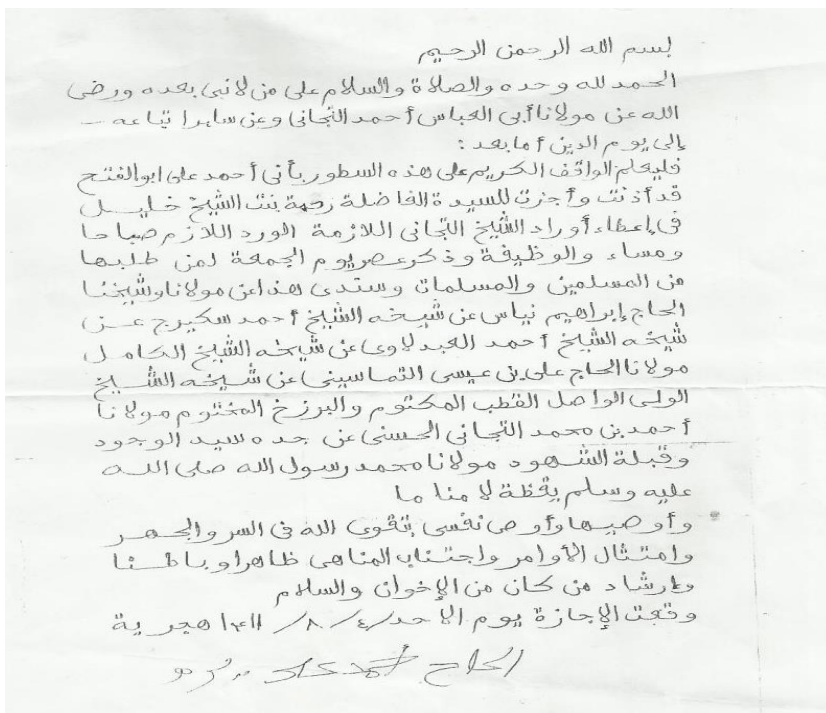 بسم الله الرحمن الرحيم
الحمد لله وحده والصلاة والسلام على من لا نبي بعده ورضى
الله عن مولانا أبي العباس أحمد التجاني وعن سائر اتباعه –
إلى يوم الدين أما بعد :
فليعلم الواقف الكريم على هذه السطور بأنى أحمد على ابوالفتح
قد أذنت وأجزت للسيدة الفاضلة رحمة بنت الشيخ خليل
فى إعطاء أوراد الشيخ التجانى اللازمة الورد اللازم صباحا
ومساء والوظيفة وذكر عصر يوم الجمعة لمن طلبها
من المسلمين والمسلمات وسندى هذا عن مولانا وشيخنا
الحاج إبراهيم نياس عن شيخه الشيخ أحمد سكيرج عن
شيخه الشيخ أحمد العبدلاوى عن شيخه الشيخ الكامل
مولانا الحاج على بن عيسى التماسينى عن شيخه الشيخ
الولى الواصل القطب المكتوم والبرزخ المختوم مولانا
أحمد بن محمد التجانى الحسنى عن جده سيد الوجود
وقبلة الشهود مولانا محمد رسول الله صلى الله
عليه وسلم يقظة لا مناما
وأوصيها وأوصى نفسى بتقوى الله فى السر والجهر
وامتثال الأوامر واجتناب المناهى ظاهرا وباطنا
وإرشاد من كان من الإخوان والسلام
وقعت الإجازة يوم الاحد /٤/ ٨/ ١٤١١ هجرية
الحاج أحمد على